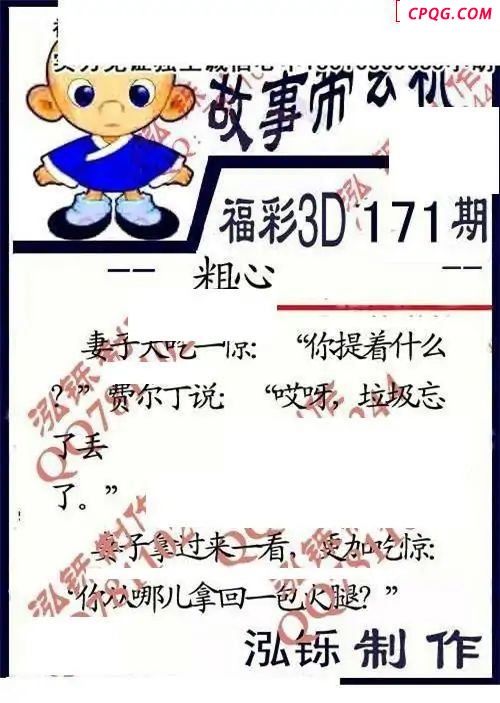 CPQG.COM
故事带玄机
福彩3D 171期
-- 粗心 --
妻子大吃一惊：“你提着什么
？”费尔丁说：“哎呀，垃圾忘
了丢
了。”
妻子拿过来一看，更加吃惊：
“你从哪儿拿回一包火腿？”
泓铄制作